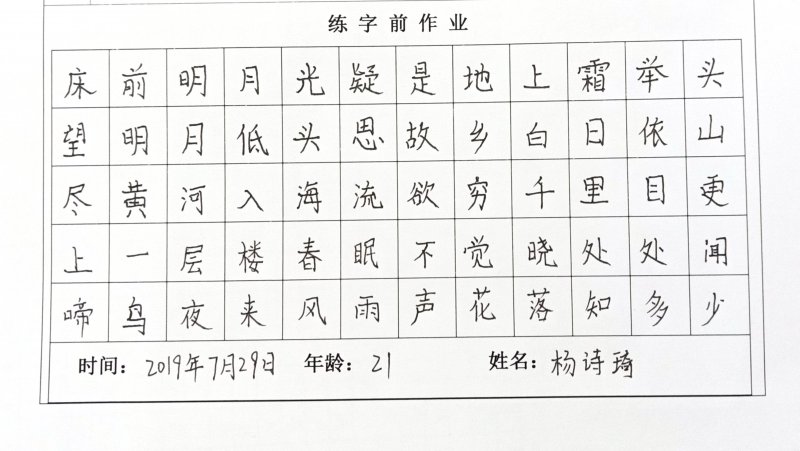 练字前作业
床前明月光疑是地上霜举头
望明月低头思故乡白日依山
尽黄河入海流欲穷千里目更
上一层楼春眠不觉晓处处闻
啼鸟夜来风雨声花落知多少
时间：2019年7月29日 年龄：21 姓名：杨诗琦